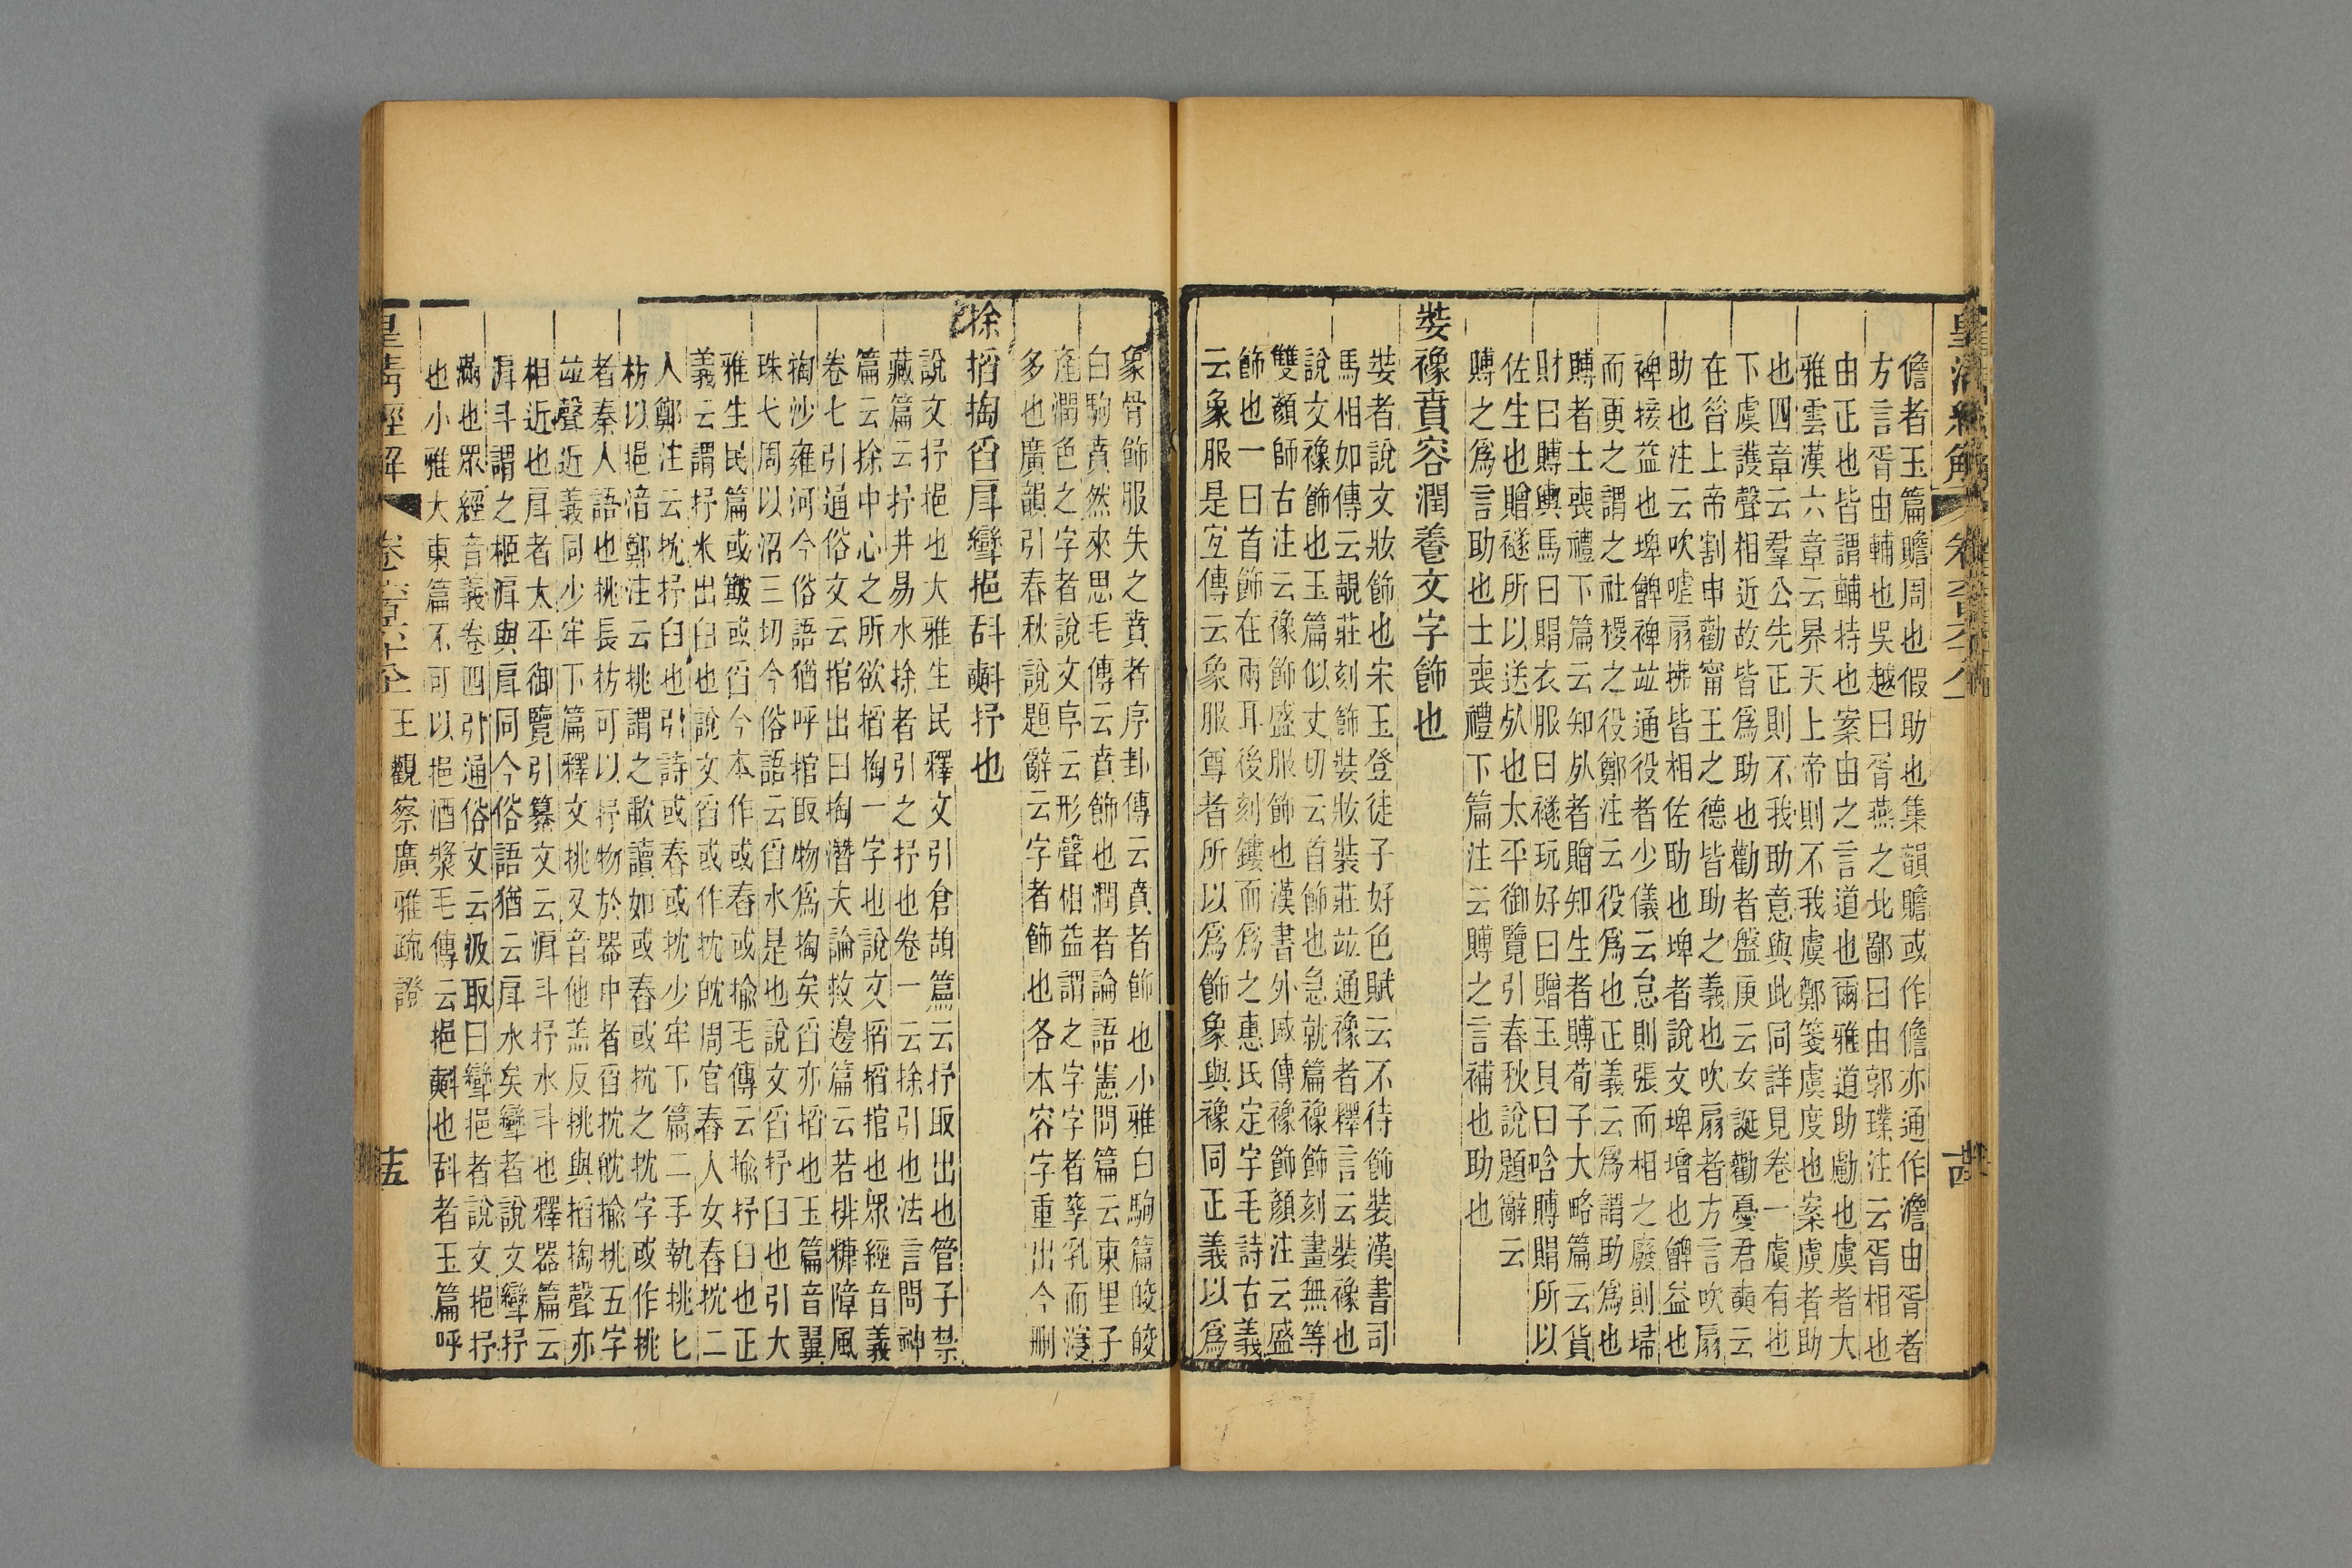 儋者玉篇贍周也假助也集韻贍或作儋亦通作澹由胥者
方言胥由輔也吳越曰胥燕之北鄙曰由郭璞注云胥相也
由正也皆謂輔持也案由之言道也爾雅道助勴也虞者大
雅雲漢六章云昊天上帝則不我虞鄭箋虞度也案虞者助
也四章云羣公先正則不我助意與此同詳見卷一虞有也
下虞護聲相近故皆爲助也勸者盤庚云女誕勸憂君奭云
在昔上帝割申勸甯王之德皆助之義也吹扇者方言吹扇
助也注云吹噓扇拂皆相佐助也埤者說文埤增也髀益也
裨接益也埤髀裨竝通役者少儀云怠則張而相之廢則埽
而更之謂之社稷之役鄭注云役爲也正義云爲謂助爲也
賻者士喪禮下篇云知死者贈知生者賻荀子大略篇云貨
財曰賻輿馬曰賵衣服曰襚玩好曰贈玉貝曰唅賻賵所以
佐生也贈襚所以送死也太平御覽引春秋說題辭云
賻之爲言助也士喪禮下篇注云賻之言補也助也
裝襐賁容潤養文字飾也
裝者說文妝飾也宋玉登徒子好色賦云不待飾裝漢書司
馬相如傳云靚莊刻飾裝妝裝莊竝通襐者釋言云裝襐也
說文襐飾也玉篇似丈切云首飾也急就篇襐飾刻畫無等
雙顏師古注云襐飾盛服飾也漢書外戚傳襐飾顏注云盛
飾也一曰首飾在兩耳後刻鏤而爲之惠氏定宇毛詩古義
云象服是宐傳云象服尊者所以爲飾象與襐同正義以爲
象骨飾服失之賁者序卦傳云賁者飾也小雅白駒篇皎皎
白駒賁然來思毛傳云賁飾也潤者論語憲問篇云東里子
產潤色之字者說文序云形聲相益謂之字字者孳乳而浸
多也廣韻引春秋說題辭云字者飾也各本容字重出今刪
捈搯掏舀㪺攣挹㪿㪺抒也
說文抒挹也大雅生民釋文引倉頡篇云抒取出也管子禁
藏篇云抒井易水捈者引之抒也卷一云捈引也法言問神
篇云捈中心之所欲搯掏一字也說文搯搯捾也眾經音義
卷七引通俗文云捾出曰掏潛夫論救邊篇云若排糠障風
掏沙雍河今俗語猶呼捾取物爲掏矣舀亦搯也玉篇音翼
珠弋周以沼三切今俗語云舀水是也說文舀抒臼也引大
雅生民篇或簸或舀今本作或舂或揄毛傳云揄抒臼也正
義云謂抒米出臼也說文舀或作抌䑣周官舂人女舂抌二
人鄭注云抌抒臼也引詩或舂或抌少牢下篇二手執挑匕
枋以挹湆鄭注云挑謂之歃讀如或舂或抗之抌字或作挑
者秦人語也挑長枋可以抒物於器中者舀抌䑣揄挑五字
竝聲近義同少牢下篇釋文挑又音他羔反挑與搯掏聲亦
相近也㪺者太平御覽引纂文云㵋斗抒水斗也釋器篇云
㵋斗謂之㭱㵋與㪺同今俗語猶云㪺水矣攣者說文攣抒
滿也眾經音義卷四引通俗文云汲取曰攣挹者說文挹抒
也小雅大東篇不可以挹酒漿毛傳云挹㪺也㪿者玉篇呼
皇清經解 卷六百六十八上 王觀察廣雅疏證 十五